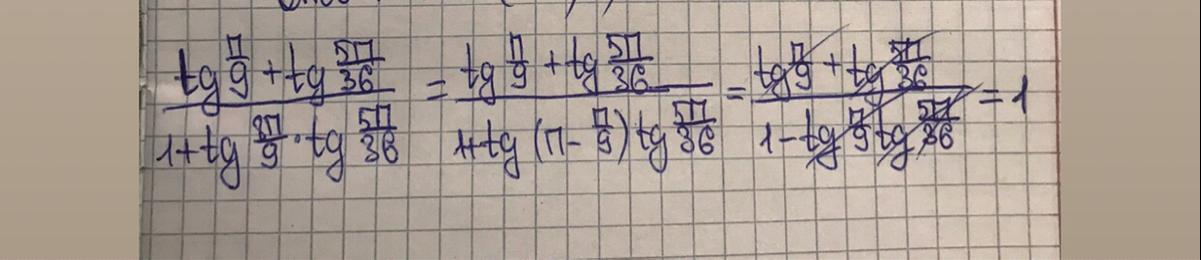 (tg π/9 + tg 5π/36)/(1 + tg 8π/9 · tg 5π/36) = (tg π/9 + tg 5π/36)/(1 + tg (π - π/9) tg 5π/36) = (tg π/9 + tg 5π/36)/(1 - tg π/9 tg 5π/36) = 1